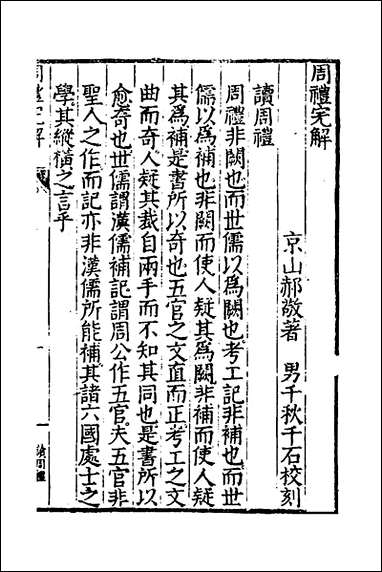 周禮完解
京山郝敬著　男千秋千石校刻
讀周禮
周禮非闕也而世儒以爲闕也考工記非補也而世
儒以爲補也非闕而使人疑其爲闕非補而使人疑
其爲補是書所以奇也五官之文直而正考工之文
曲而奇人疑其裁自兩手而不知其同也是書所以
愈奇也世儒謂漢儒補記謂周公作五官夫五官非
聖人之作而記亦非漢儒所能補其諸六國處士之
學其縱横之言乎
周禮完解
一
讀周禮